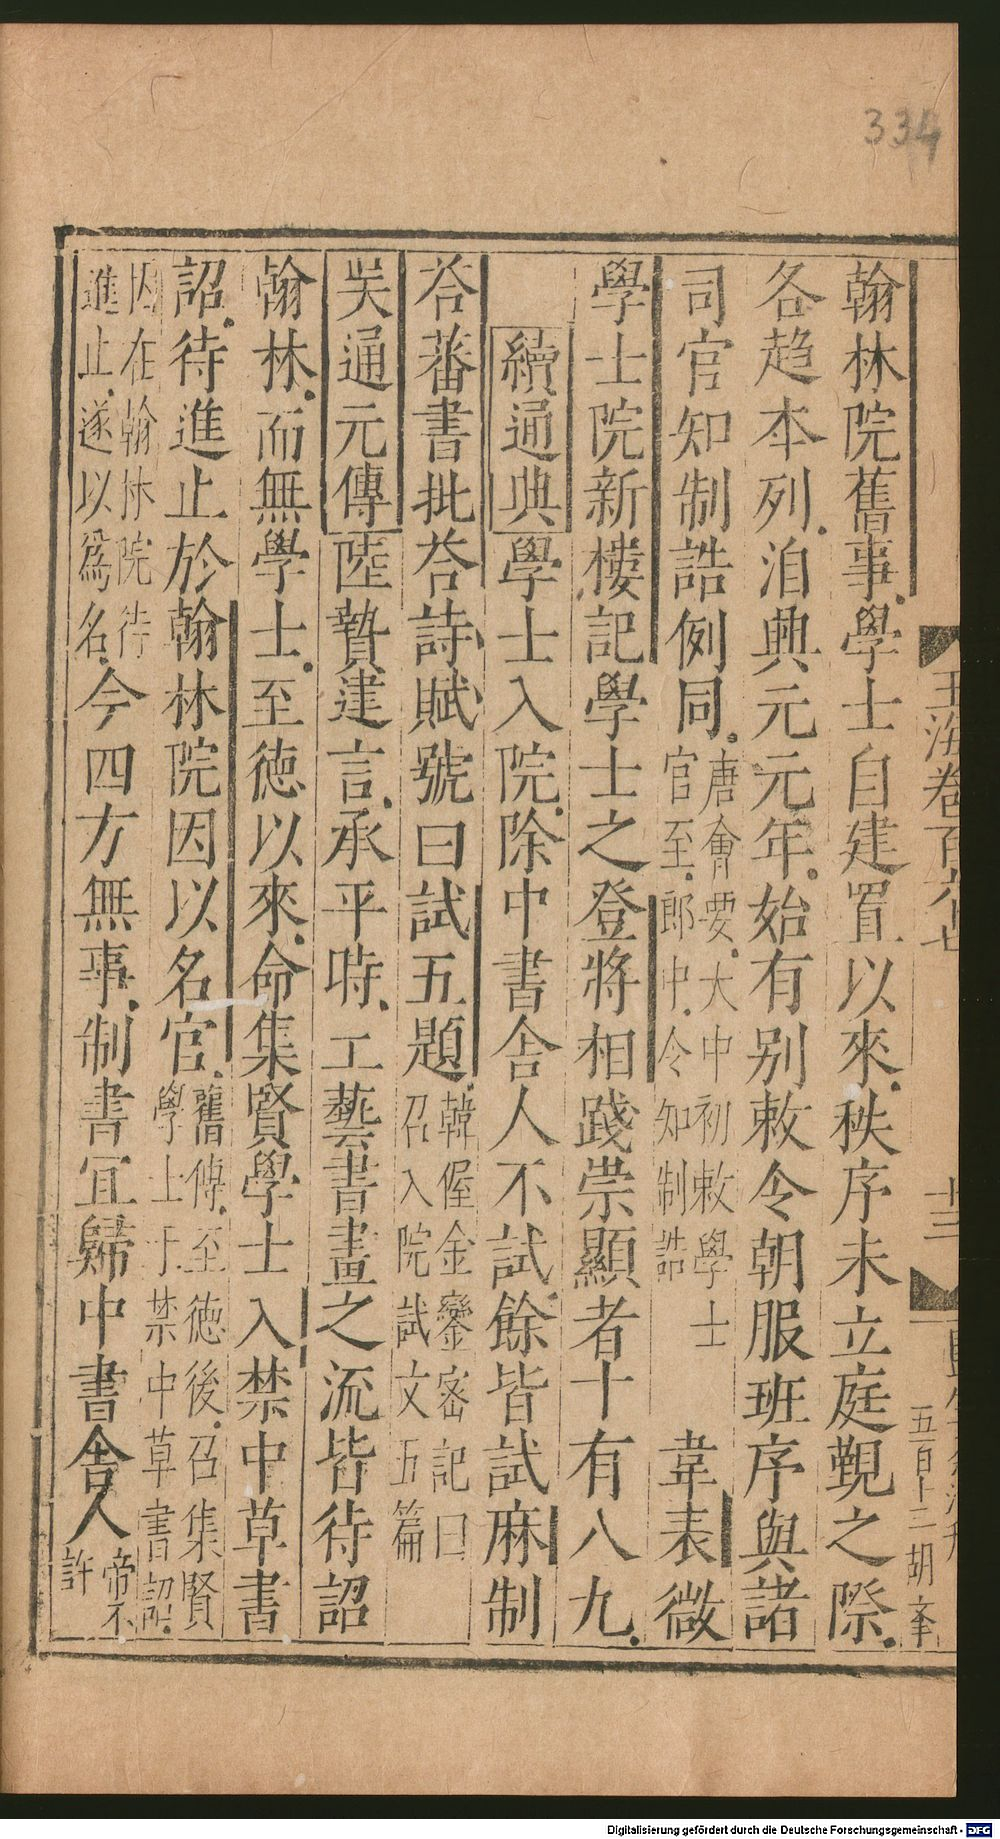 334
玉海卷百六十七
十三
五百十二 胡文孝
翰林院舊事學士自建置以來秩序未立庭覲之際
各趍本列洎興元元年始有别敕令朝服班序與諸
司官知制誥例同唐會要大中初敕學士官至郎中令知制誥韋表微
學士院新樓記學士之登將相踐崇顯者十有八九
續通典學士入院除中書舍人不試餘皆試麻制
荅蕃書批荅詩賦號曰試五題韓偓金鑾密記曰召入院試文五篇
吴通元傳陸贄建言承平時工藝書畫之流皆待詔
翰林而無學士至德以來命集賢學士入禁中草書
詔待進止於翰林院因以名官舊傳至德後召集賢學士于禁中草書詔
因在翰林院待進止遂以爲名今四方無事制書宜歸中書舍人帝不許
Digitalisierung gefördert durch die Deutsche Forschungsgemeinschaft - DFG